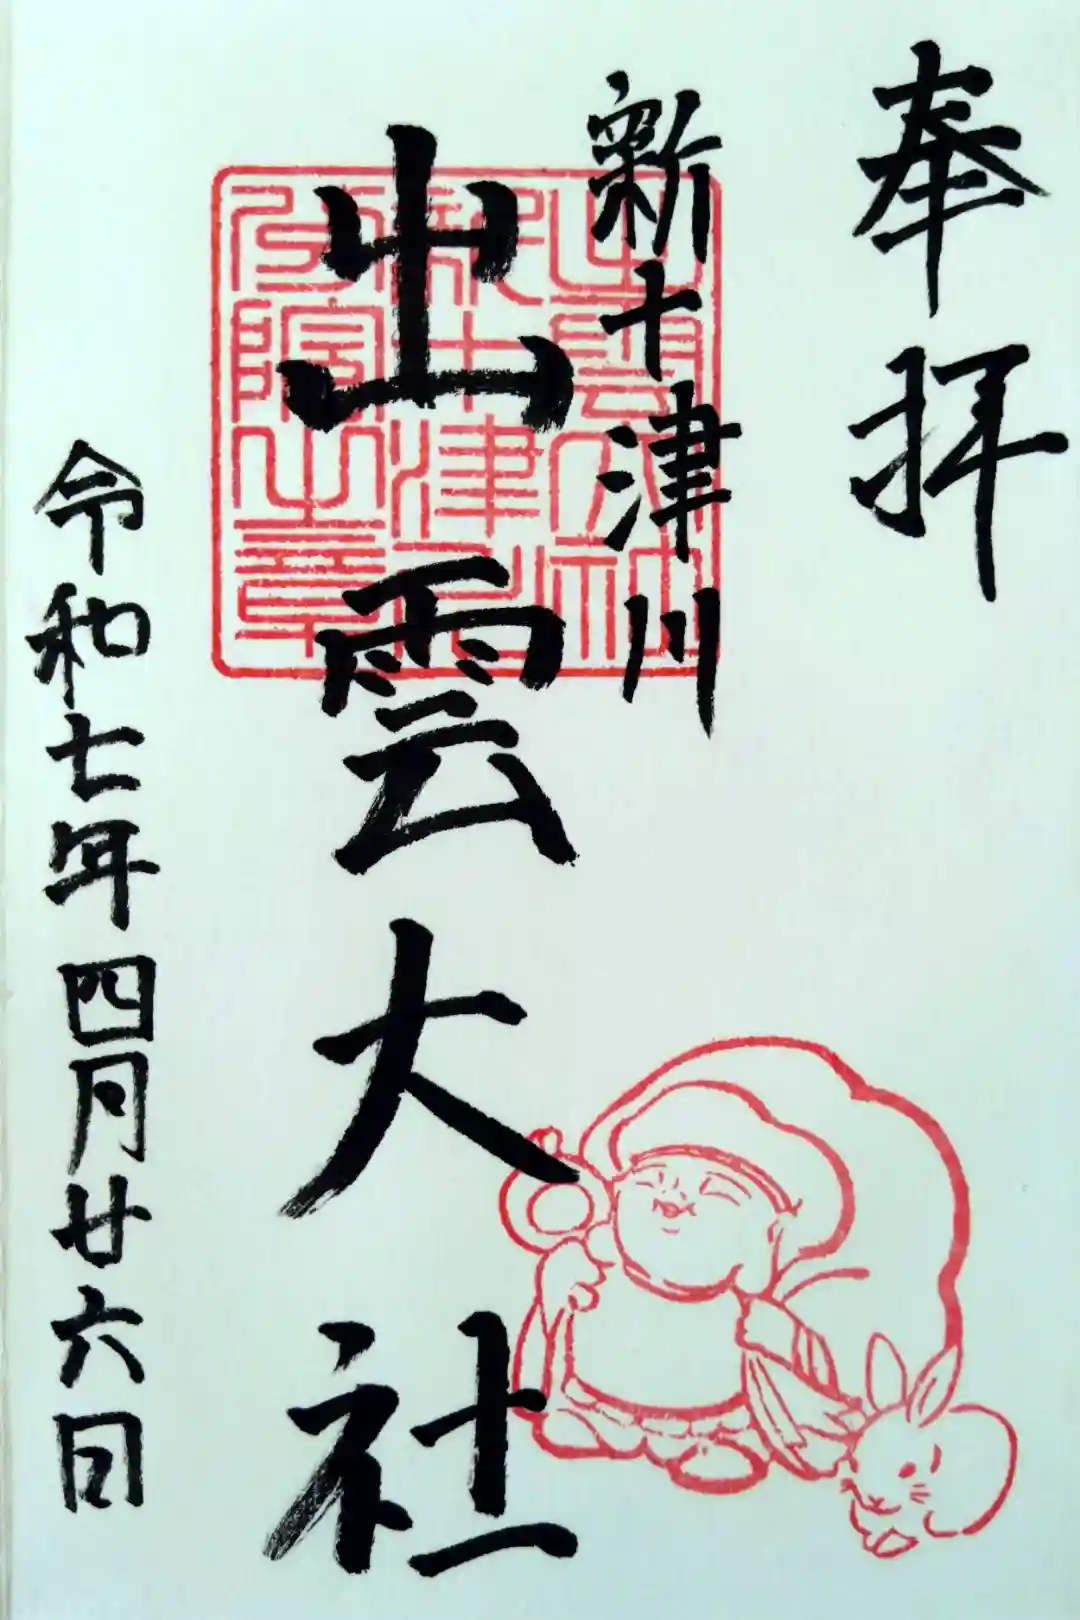 奉拝
新十津川
出雲大社
出雲大社新十津川分院之章
令和七年四月廿六日